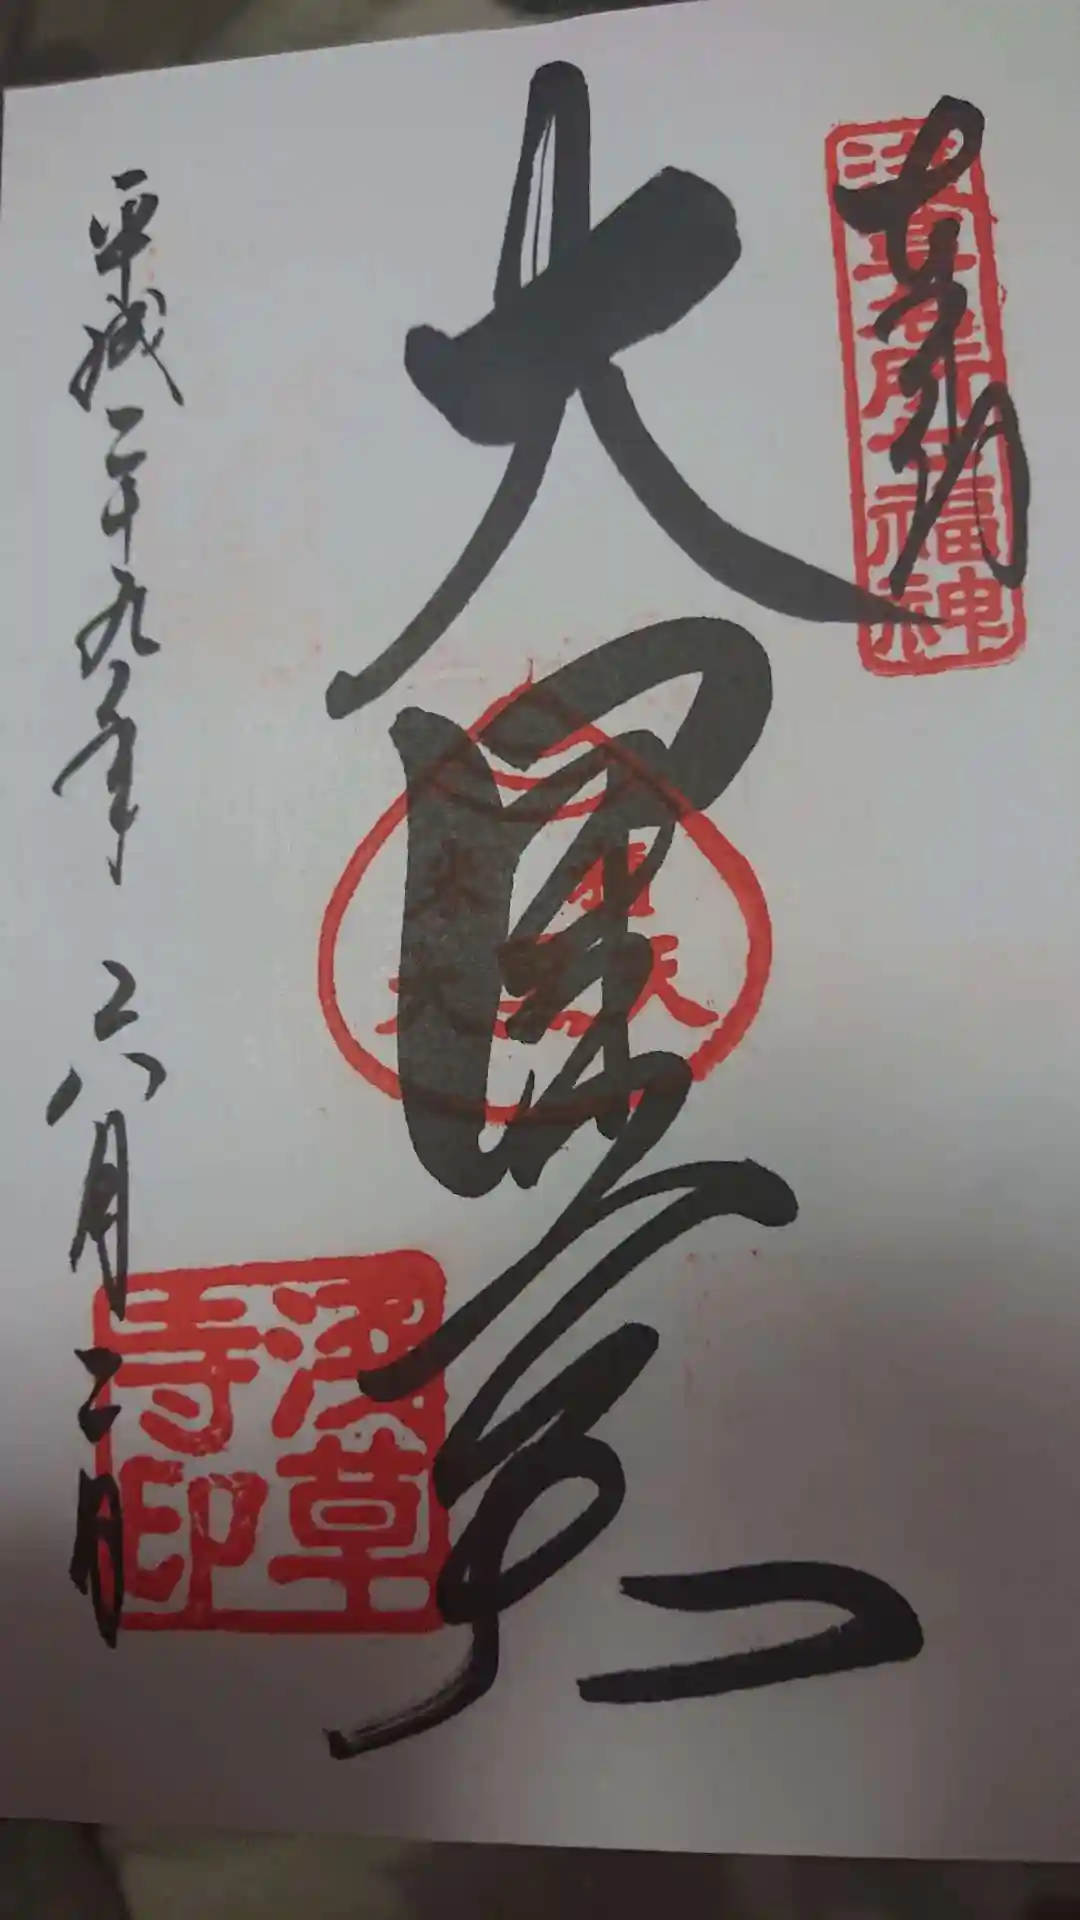 奉拝
浅草名所七福神
大黒天
浅草寺印
平成二十九年 六月二日